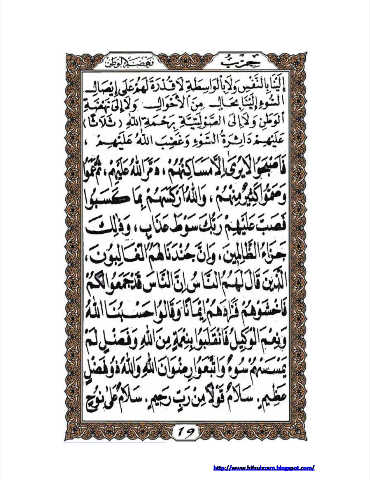 حزب نهضة الوطن
إلينا بالنفس ولا بالواسطة لا قدرة لهم على إيصال
السوء إلينا بحال من الأحوال ولا إلى نهضة
الوطن ولا إلى الصولتية برحمة الله (ثلاثا)
عليهم دائرة السوء وغضب الله عليهم ،
فأصبحوا لا يرى إلا مساكنهم ، دمر الله عليهم ، ثم عموا
وصموا كثير منهم ، والله أركسهم بما كسبوا
فصب عليهم ربك سوط عذاب ، وذلك
جزاء الظالمين ، وإن جندنا لهم الغالبون ،
الذين قال لهم الناس إن الناس قد جمعوا لكم
فاخشوهم فزادهم إيمانا وقالوا حسبنا الله
ونعم الوكيل فانقلبوا بنعمة من الله وفضل لم
يمسسهم سوء واتبعوا رضوان الله والله ذو فضل
عظيم . سلام قولا من رب رحيم . سلام على نوح
19
http://www.hifzulxxxm.blogspot.com/